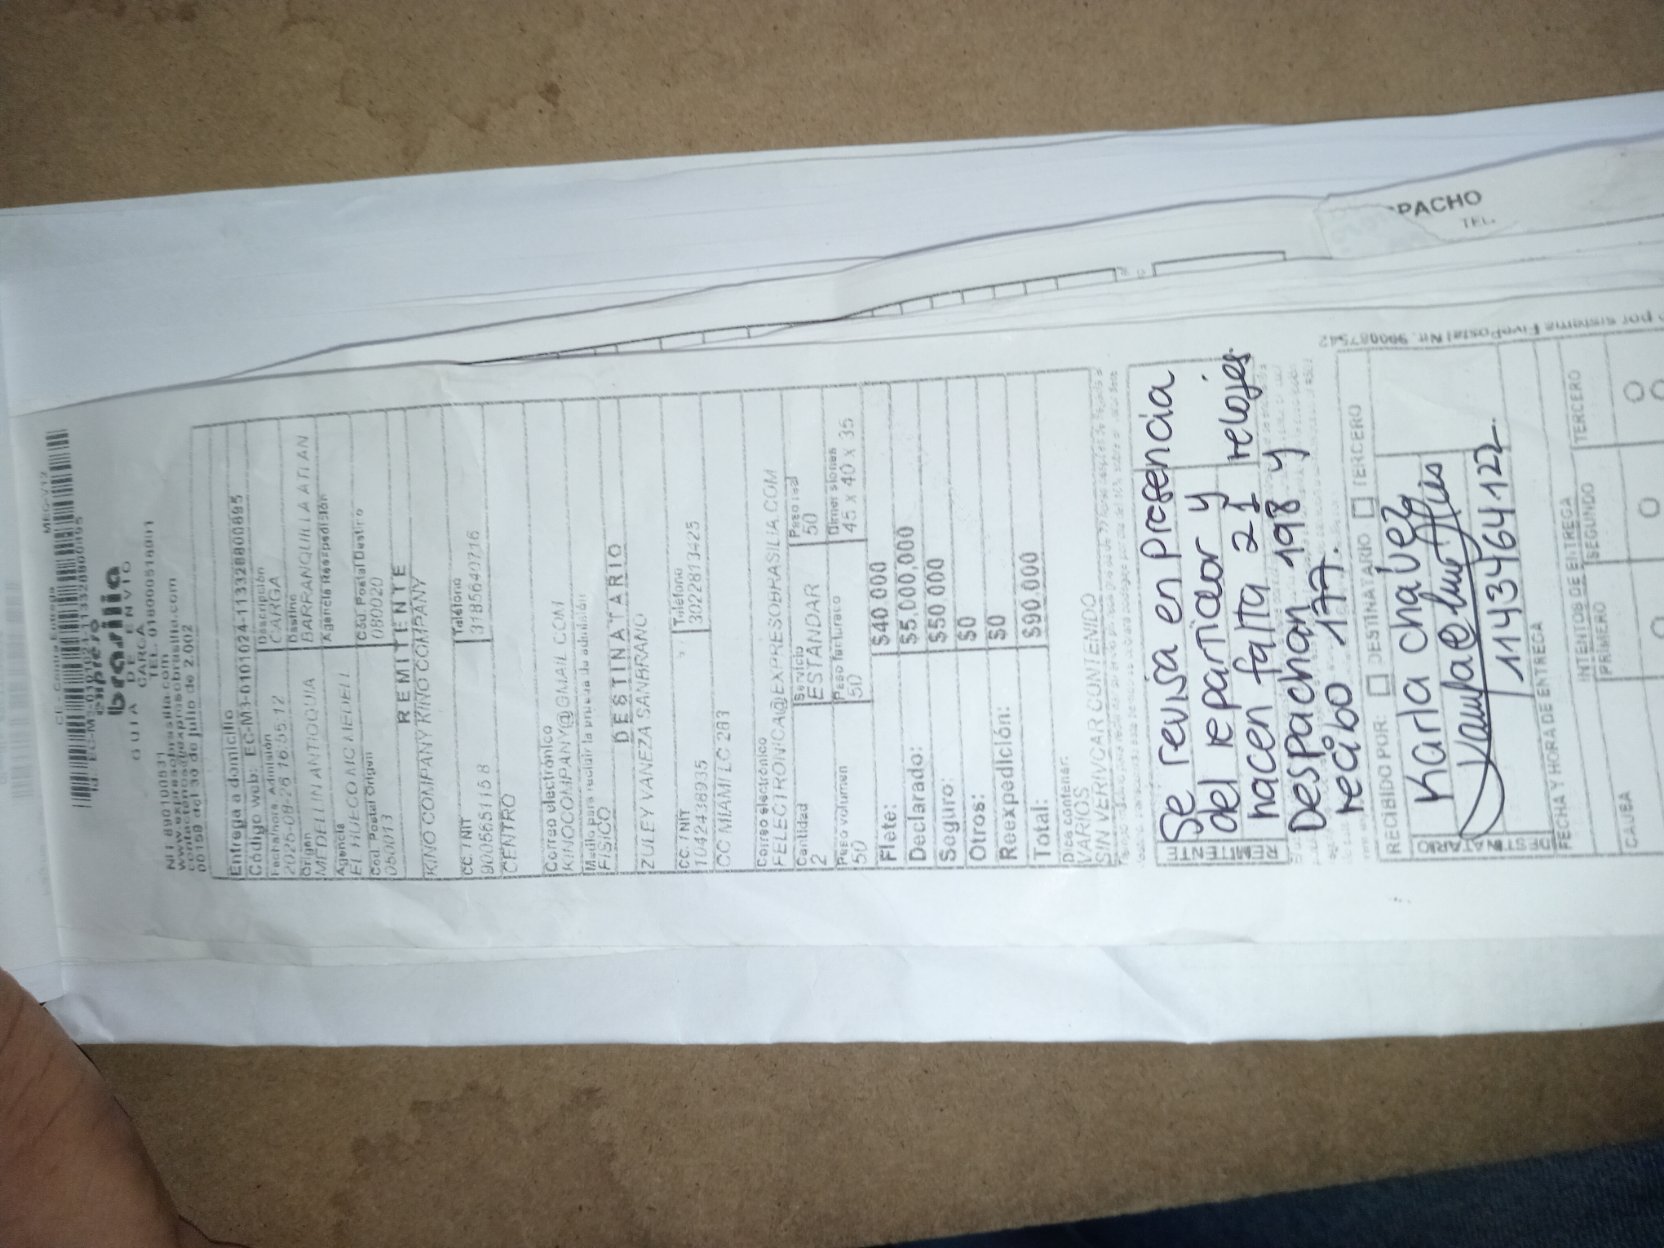 CL. Contra Entrega
MED-V12
expreso
brasilia
GUIA DE ENVIO
CARGA
TEL. 018000518001
NIT 890100531
www.expresobrasilia.com
contactenos@expresobrasilia.com
00150 del 30 de julio de 2.002
Entrega a domicilio
Código web: EC-M3-0101024-1133280800895
Fecha/hora Admisión
2025-08-26 16:55:12
Descripción
CARGA
Origen
MEDELLIN ANTIOQUIA
Destino
BARRANQUILLA ATLAN
Agencia
Agencia Reexpedición
Cod. Postal Origen
050013
Cod. Postal Destino
080020
REMITENTE
KINO COMPANY KINO COMPANY
CC. / NIT
900565115 8
Teléfono
3185640716
CENTRO
Correo electrónico
KINOCOMPANY@GMAIL.COM
Medio para recibir la prueba de admisión
FISICO
DESTINATARIO
ZULEY VANEZA SANBRANO
CC. / NIT
1042436935
Teléfono
3022813425
CC MIAMI LC 283
Correo electrónico
FELECTRONICA@EXPRESOBRASILIA.COM
Cantidad
2
Servicio
ESTANDAR
Peso real
50
Peso volumen
50
Peso facturado
50
Dimensiones
45 x 40 x 35
Flete: $40.000
Declarado: $5.000.000
Seguro: $50.000
Otros: $0
Reexpedición: $0
Total: $90.000
Dice contener:
VARIOS
SIN VERIVCAR CONTENIDO
REMITENTE
Se revisa en presencia
del reparticor y
hacen falta 21 relojes.
Despachan 198 y
recibo 177.
RECIBIDO POR: DESTINATARIO TERCERO
DESTINATARIO
Karla chavez
1143464122
FECHA Y HORA DE ENTREGA
INTENTOS DE ENTREGA
PRIMERO SEGUNDO TERCERO
CAUSA
por sistema FivePostal Nit. 900087542
PACHO
TEL.